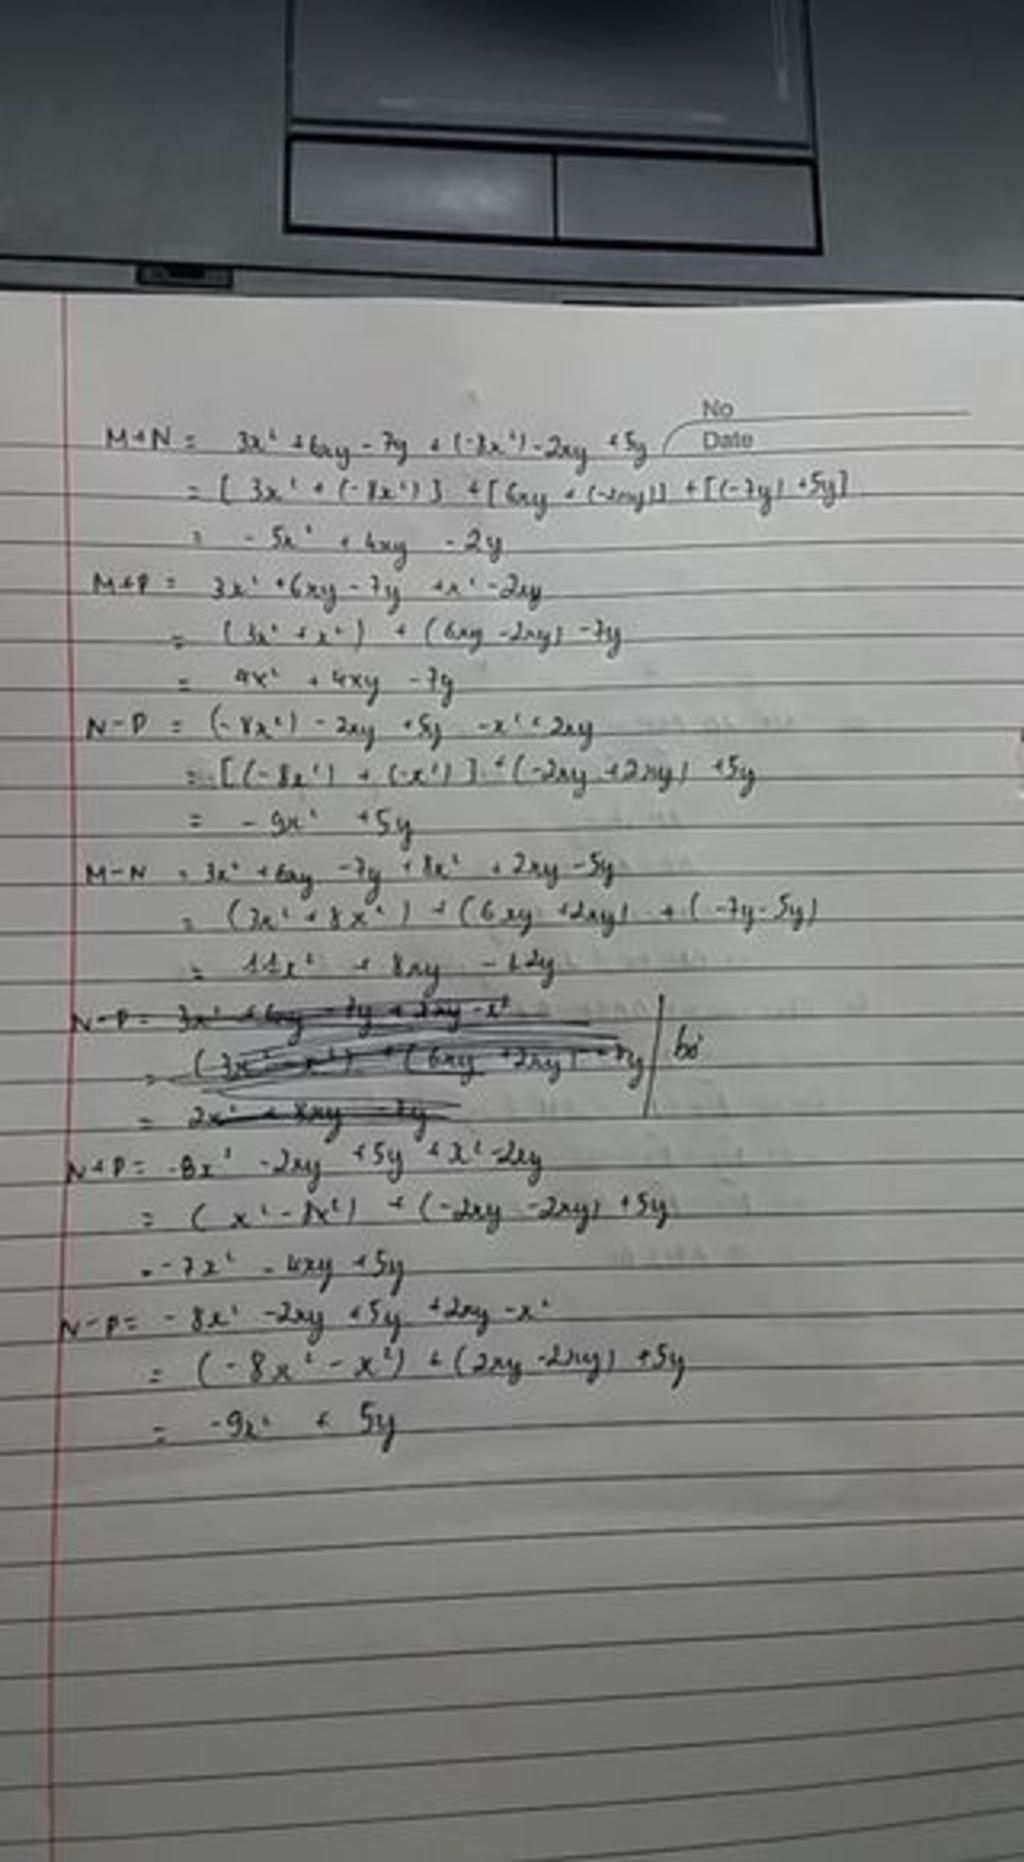 No
Date
M+N = 3x² + 6xy - 7y + (-8x²) - 2xy + 5y
= [3x² + (-8x²)] + [6xy + (-2xy)] + [(-7y) + 5y]
= -5x² + 4xy - 2y
M+P = 3x² + 6xy - 7y + x² - 2xy
= (3x² + x²) + (6xy - 2xy) - 7y
= 4x² + 4xy - 7y
N-P = (-8x²) - 2xy + 5y - x² + 2xy
= [(-8x²) + (-x²)] + (-2xy + 2xy) + 5y
= -9x² + 5y
M-N = 3x² + 6xy - 7y + 8x² + 2xy - 5y
= (3x² + 8x²) + (6xy + 2xy) + (-7y - 5y)
= 11x² + 8xy - 12y
N-P = 3x² + 6xy - 7y + 2xy - x²
= (3x² - x²) + (6xy + 2xy) - 7y bỏ
= 2x² + 8xy - 7y
N+P = -8x² - 2xy + 5y + x² - 2xy
= (x² - 8x²) + (-2xy - 2xy) + 5y
= -7x² - 4xy + 5y
N-P = -8x² - 2xy + 5y + 2xy - x²
= (-8x² - x²) + (2xy - 2xy) + 5y
= -9x² + 5y